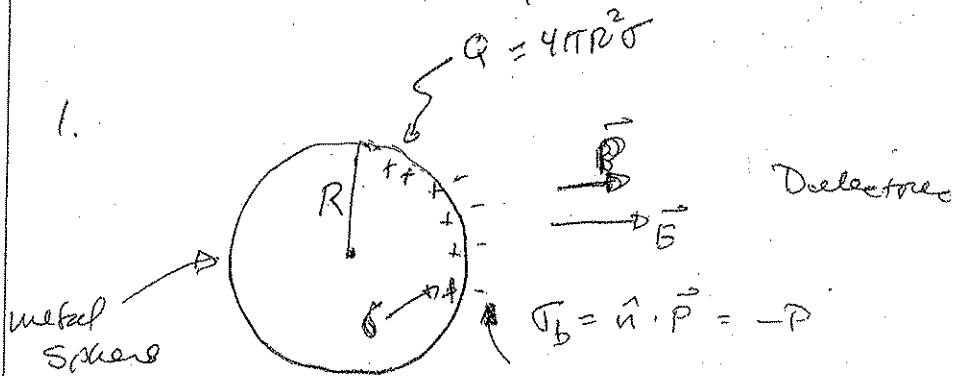 Q = 4πR²σ
1.
R
P⃗
Dielectric
E⃗
metal
sphere
σ
+ + + + + +
- - - -
σ_b = n̂ · P⃗ = -P